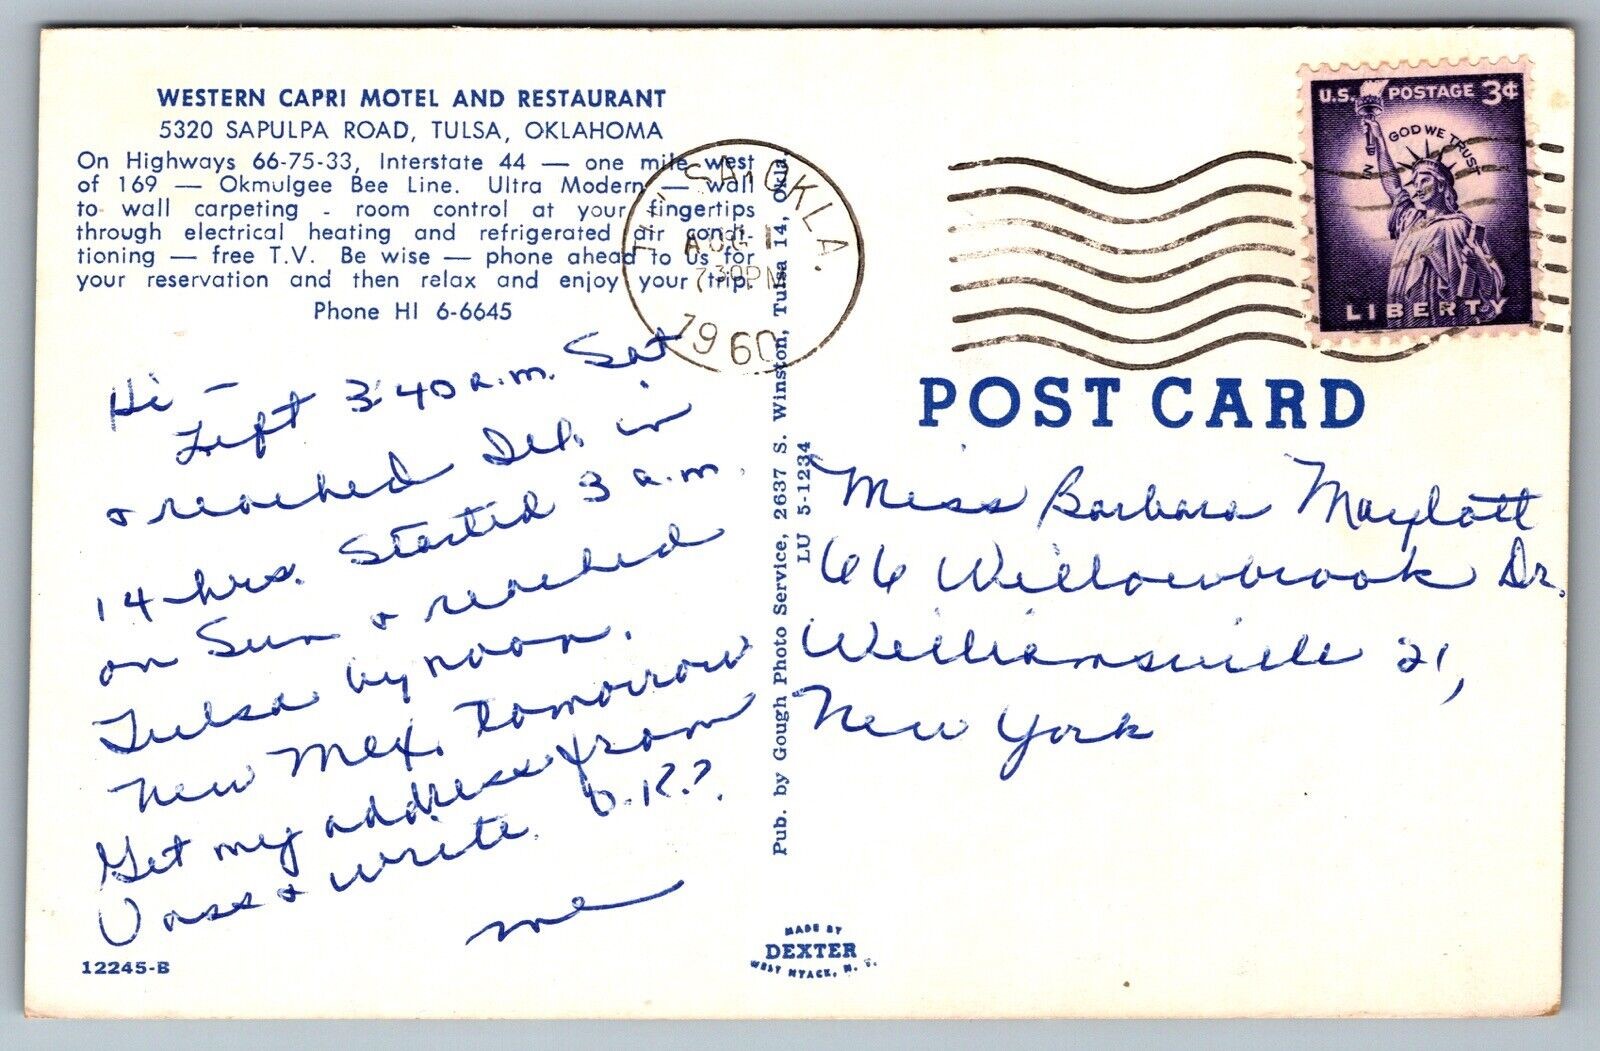 WESTERN CAPRI MOTEL AND RESTAURANT
5320 SAPULPA ROAD, TULSA, OKLAHOMA
On Highways 66-75-33, Interstate 44 — one mile west
of 169 — Okmulgee Bee Line. Ultra Modern — wall
to wall carpeting - room control at your fingertips
through electrical heating and refrigerated air condi-
tioning — free T.V. Be wise — phone ahead to us for
your reservation and then relax and enjoy your trip.
Phone HI 6-6645
Hi —
Left 3:40 a.m. Sat
& reached Ill. in
14 hrs. Started 3 a.m.
on Sun & reached
Tulsa by noon.
New Mex. tomorrow
Get my address from
& write. O.K.?
me
12245-B
Pub. by Gough Photo Service, 2637 S. Winston, Tulsa 14, Okla.
LU 5-1234
MADE BY
DEXTER
WEST NYACK, N. Y.
TULSA, OKLA.
AUG 1
7:30 PM
1960
U.S. POSTAGE 3¢
IN GOD WE TRUST
LIBERTY
POST CARD
Miss Barbara Maylott
66 Willowbrook Dr.
Williamsville 21,
New York